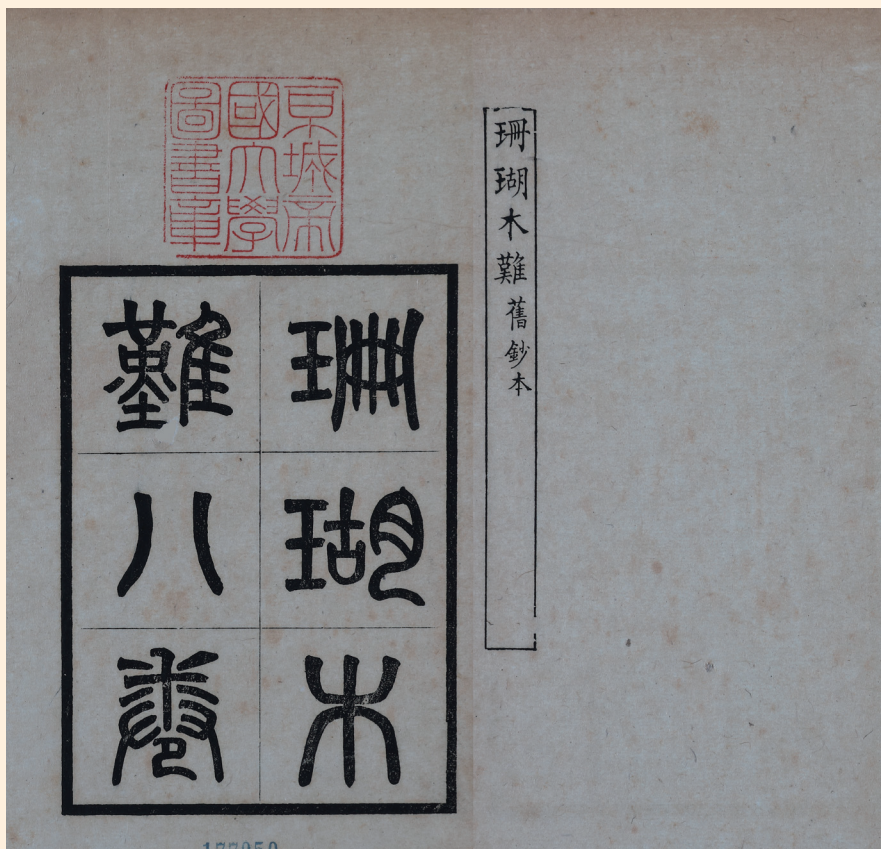 珊瑚木難舊鈔本
京城帝
國大學
圖書章
珊瑚木
難八卷